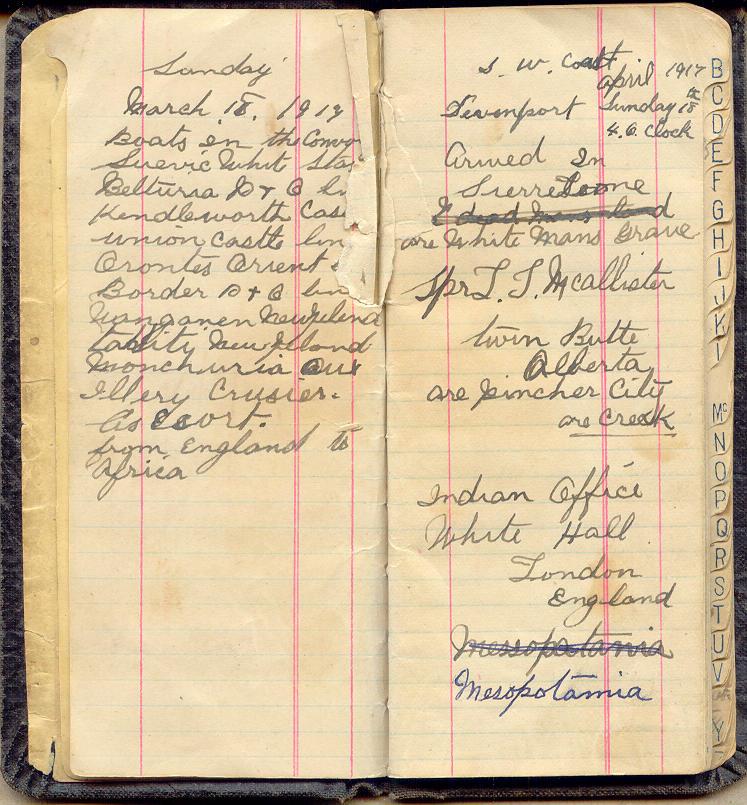 Sunday
March 18, 1917
Boats in the Convo
Suevic Whit Sta
Belturia P + O lin
Kendleworth Cas
union Castle lin
Orontes Orient
Border P + O lin
New Zeland
New Zelland
Monchuria Aux
Illery Crusier.
As Escort.
from England to
Africa
S. W. Coast
April 1917
Devonport Sunday 18
4. O. Clock
Arived In
Sierre Leone
are White Mans Grave
Spr L. J. McAllister
Twin Butte
Alberta
are Pincher City
are Creek
Indian Office
White Hall
London
England
Messopotamia
Mesopotamia
B
C
D
E
F
G
H
I
J
K
L
Mc
N
O
P
Q
R
S
T
U
V
Y